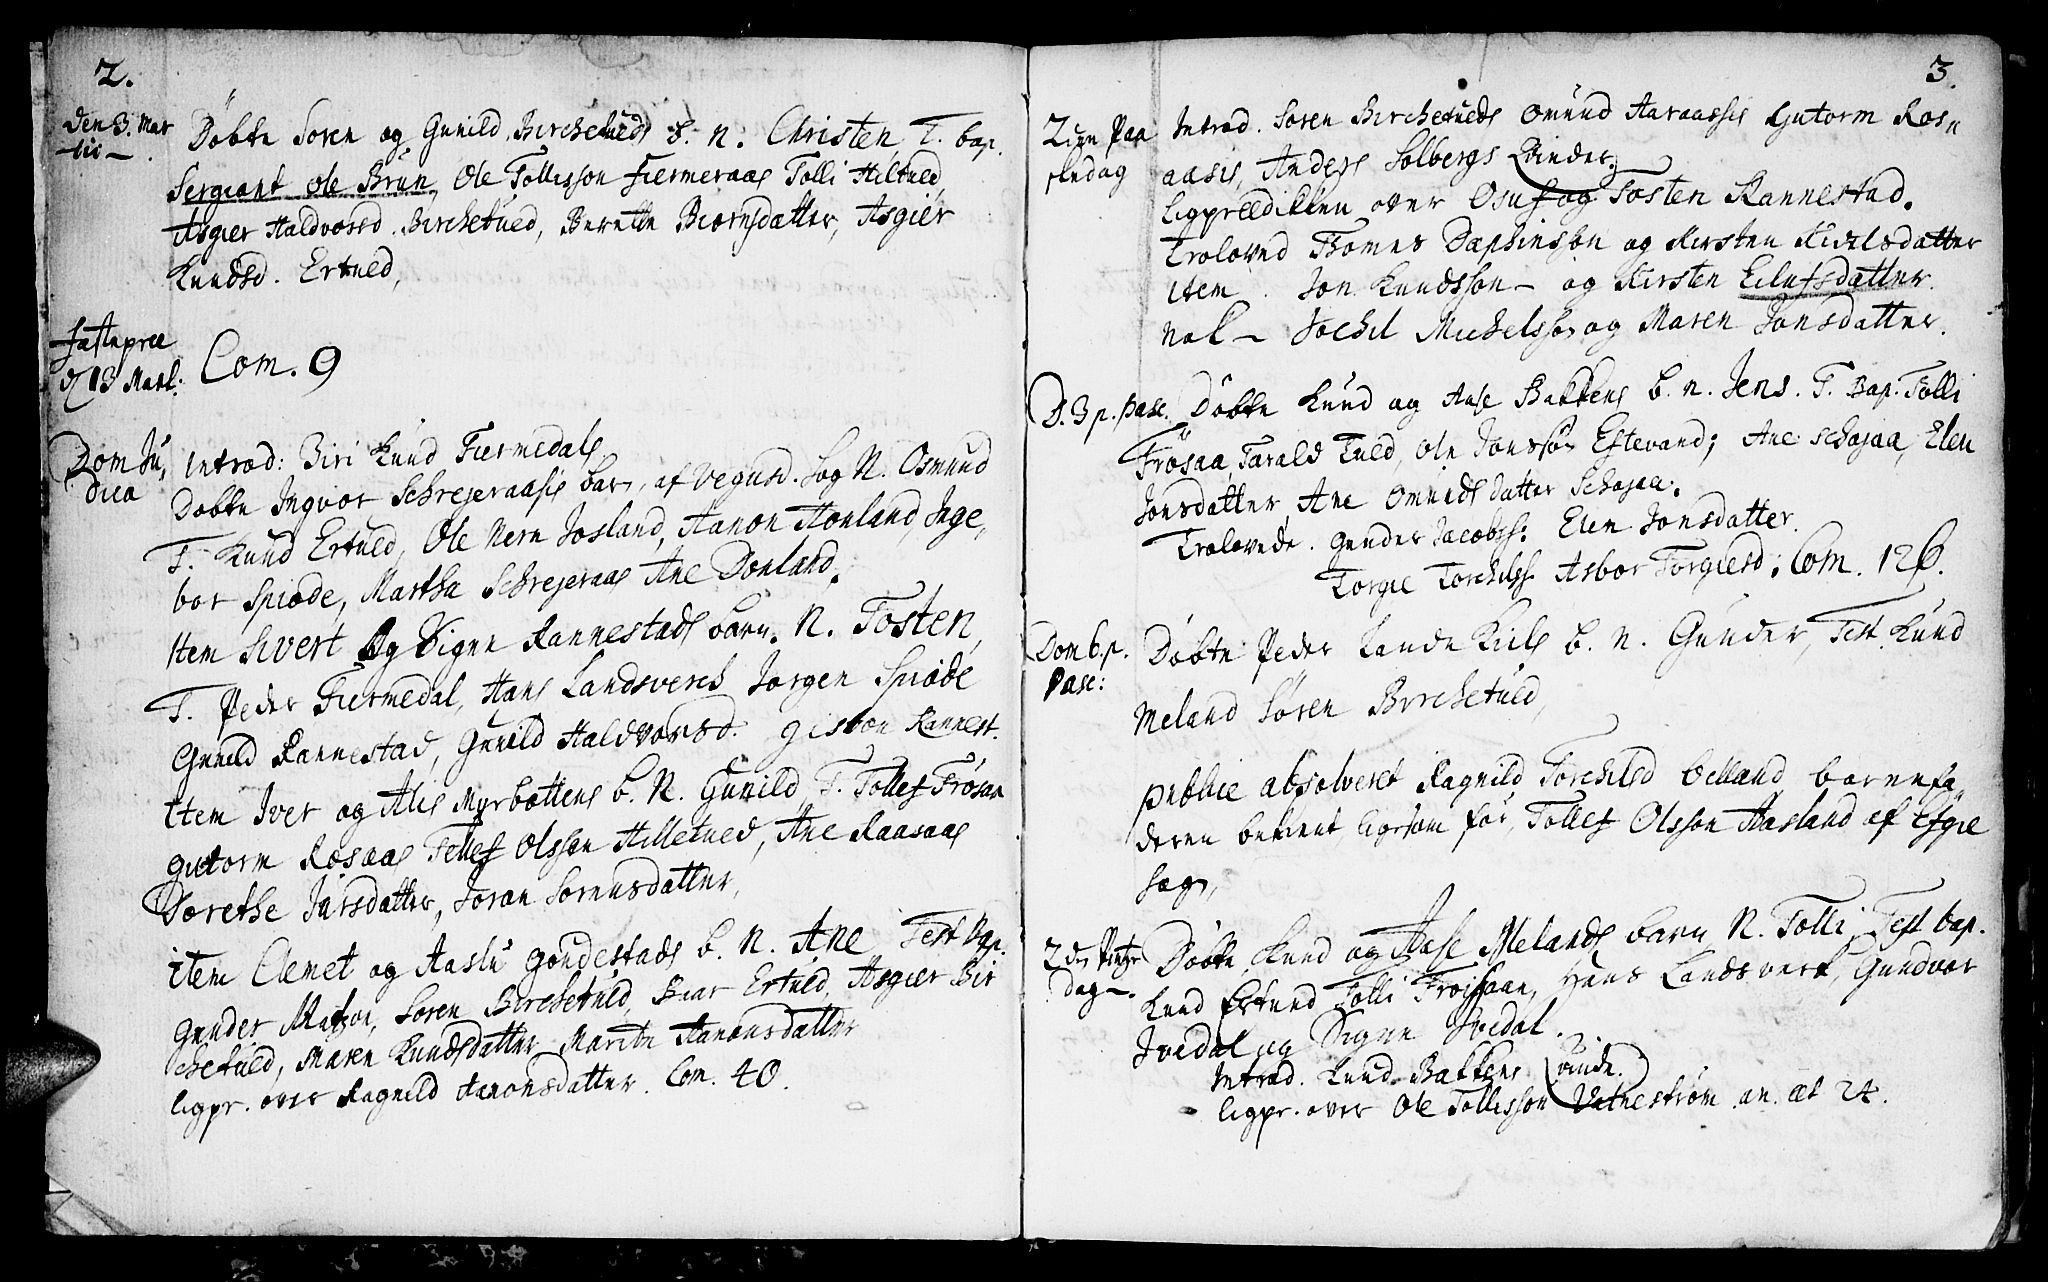 2.
den 3. Mar
tii –
Döbte Soren og Gunild Birchetueds b. N. Christen, T. bap.
Sergiant Ole Brun, Ole Tollisson Fiermeraas Tolli Hiltued,
Asgier Haldvorsd. Birchetued, Berette Biørnsdatter, Asgier
Knudsd. Ertued,
fastepree
d 13 Mart:
Com. 9
Dom Ju,
dica
introd: Biri Knud Fiermedals
Døbte Ingvor Schrejeraasis barn, af Vegusd. Sog N. Osmund
T. Knud Ertued, Ole Nern Josland, Aanon Honland, Inge,
bor Spiøde, Martha Schrejeraas Ane Dønland.
Item Sivert Og Signe Rannestads barn. N. Tosten,
T. Peder Fiermedal, Hans Landsverch Jørgen Spiøde
Gunild Rannestad, Gunild Haldvorsd. Gisbon Rannest.
Item Iver og Alis Myrbottens b. N. Gunild, T. Tollef Frösaa
Gutorm Rosaas Tellef Olsson Hilletued, Ane Raasaas
Dorethe Jarsdatter, Joran Sorensdatter,
item Clemet og Aaslu Gondestads b. N. Ane Test Bap.
Gunder Matzon, Soren Birchetuld, Boar Ertuld, Asgier Bir
chetuld, Maren Knudsdatter Marite Aanonsdatter
ligpr. over Ragnild Aanonsdatter. Com. 40.
3.
2den Paa
skedag
Introd. Soren Birchetueds Omund Aaraassis Gutorm Ros,,
aasis, Anders Solbergs Qvinder.
ligpreediken over Osuf og Tosten Rannestad.
Troloved Thomes Daphinsøn og Kirsten Nielsdatter
item . Jon Knudsson – og Kirsten Eilufsdatter.
Nok – Jochil Michelsson og Maren Jonsdatter.
D. 3 p. Pasc.
Döbte Knud og Aase Bakkens b. n. Jens. T. Bap. Tolli
Frösaa, Tarald Tued, Ole Jonssøn Eftevand; Ane Schajaa, Elen
Jonsdatter, Ane Omundsdatter Schajaa.
Trolovede. Gunder Jacobss: Elen Jonsdatter.
Torgie Torchilss. Asbor Torgiesd; Com. 126.
Dom 6. p.
Pasc:
Döbte Peder Lande Kiels b. N. Gunder, Test. Knud
Meland Søren Birchetued,
publice absolveret Ragnild Torchilsd Belland, barnefa,
deren bekient ligesom før, Tollef Olsson Aasland af Efgie
sogn,
2den Pintze
dag –.
Döbte, Knud og Aase Melands barn N. Tolli, Test bap.
Knud Ertued Tolli Froisaan, Hans Landsverk, Gundvor
Ivedal og Signe Ivedal.
Introd. Knud Bakkens Qvinde.
ligpr. over Ole Tollisson Vatnestrøm an. æt 24.